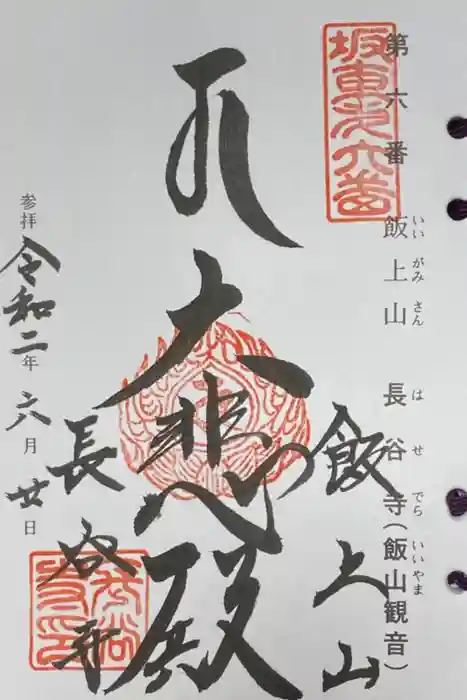 第六番 飯上山 長谷寺(飯山観音)
いいがみさん はせでら いいやま
坂東第六番
飯上山
大悲殿
長谷寺
参拝 令和二年六月廿日